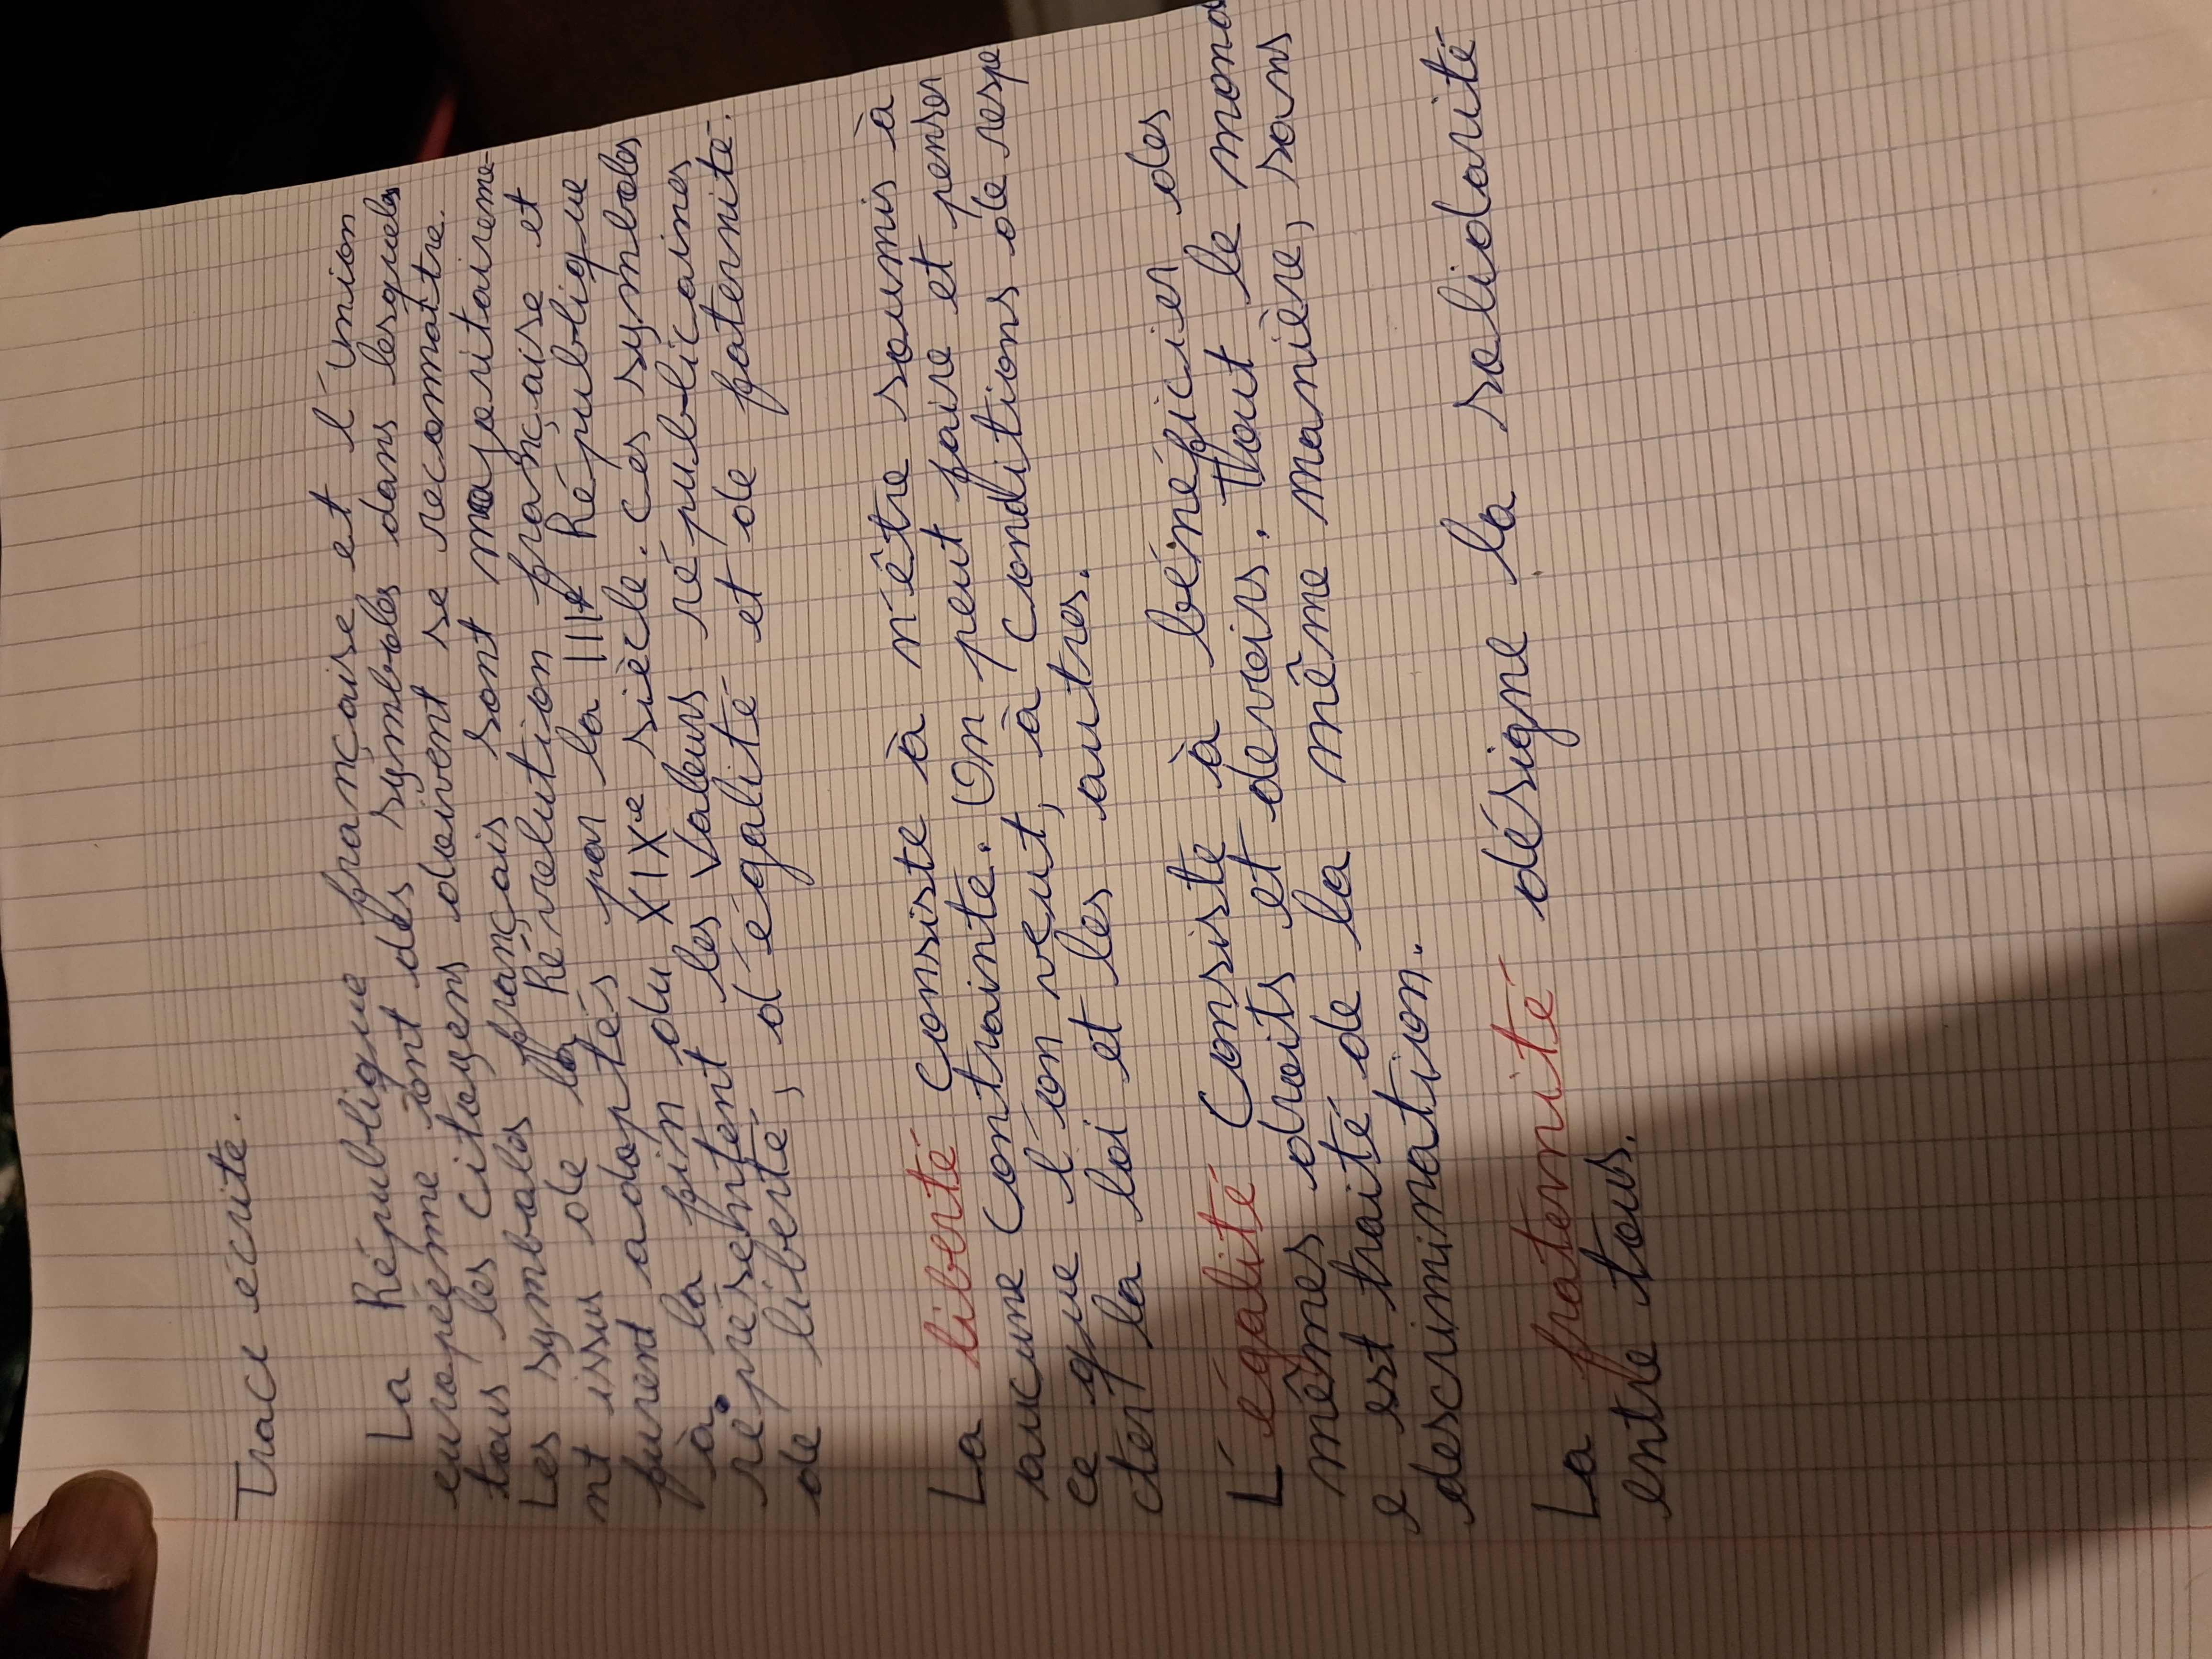 Trace écrite.
La République française et l'union
européenne ont des symboles dans lesquels
tous les citoyens doivent se reconnaître.
Les symboles français sont majoritaireme
nt issus de la Révolution française et
furent adoptés par la IIIe République
à la fin du XIXe siècle. Ces symboles
représentent les valeurs républicaines
de liberté, d'égalité et de fraternité.
La liberté consiste à n'être soumis à
aucune contrainte. On peut faire et penser
ce que l'on veut, à conditions de respe
cter la loi et les autres.
L'égalité consiste à bénéficier des
mêmes droits et devoirs. Tout le mond
e est traité de la même manière, sans
descrimination.
La fraternité désigne la solidarité
entre tous.